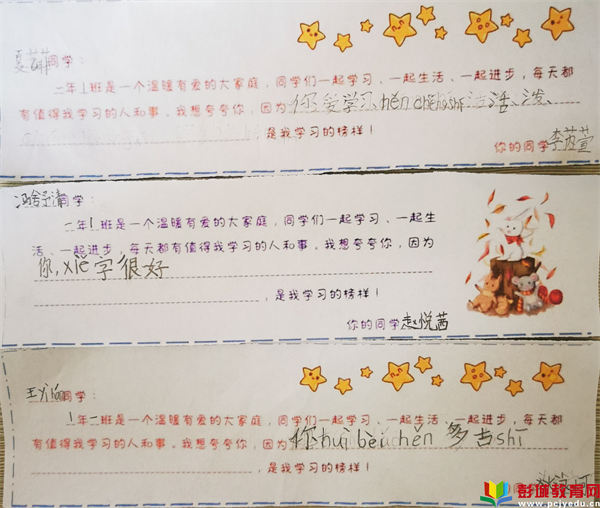 同学：
二年1班是一个温暖有爱的大家庭，同学们一起学习、一起生活、一起进步，每天都
有值得我学习的人和事。我想夸夸你，因为你爱学习hen chéngshí活、泼、
，是我学习的榜样！
你的同学李芮萱
同学：
二年1班是一个温暖有爱的大家庭，同学们一起学习、一起生
活、一起进步，每天都有值得我学习的人和事。我想夸夸你，因为
你，xiě字很好
，是我学习的榜样！
你的同学赵悦茜
同学：
1年二班是一个温暖有爱的大家庭，同学们一起学习、一起生活、一起进步，每天都
有值得我学习的人和事。我想夸夸你，因为你huì bèi hěn多古shī
，是我学习的榜样！
彭珈教育网
www.pcjyedu.cn